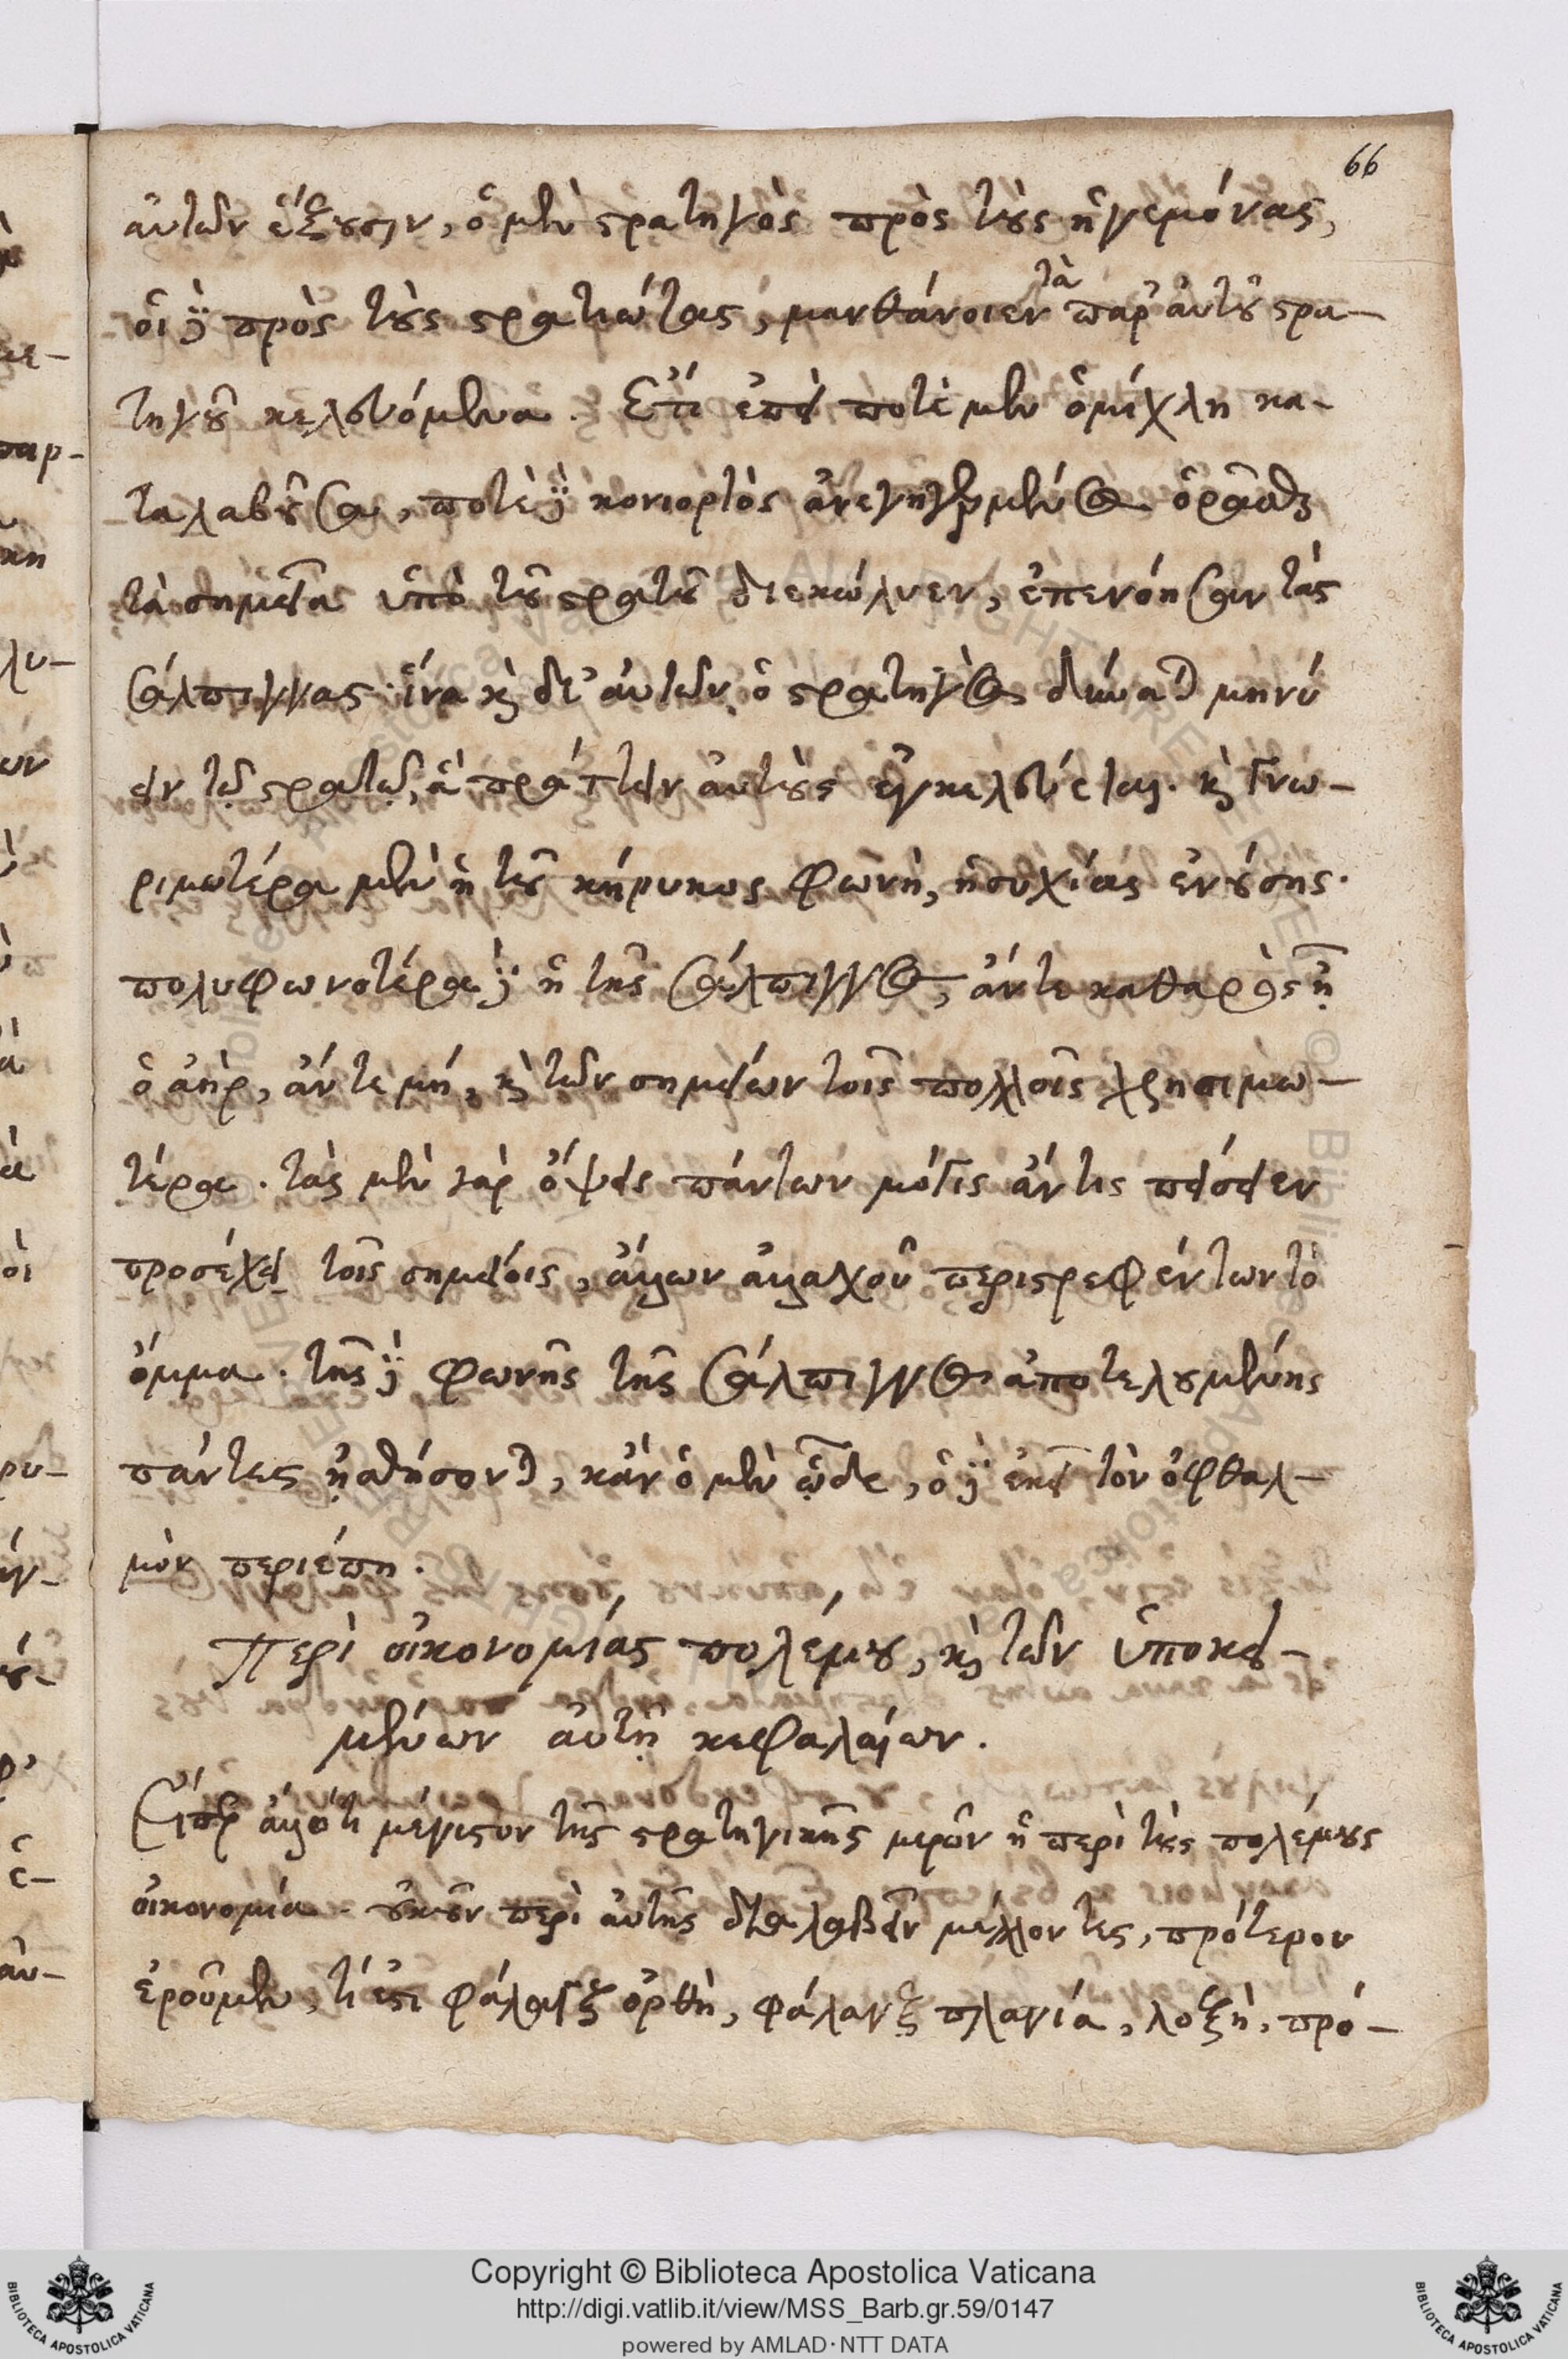 66
αὐτῶν ἕξουσιν, ὁ μὲν στρατηγὸς πρὸς τοὺς ἡγεμόνας,
οἱ δὲ πρὸς τοὺς στρατιώτας, μανθάνοιεν τὰ παρ' αὐτοῦ στρα-
τηγοῦ κελευόμενα. Ἔτι ἐπεὶ ποτὲ μὲν ὁμίχλη κα-
ταλαβοῦσα, ποτὲ δὲ κονιορτὸς ἀνεγηγερμένος ὁρᾶσθαι
τὰ σημεῖα ὑπὸ τοῦ στρατοῦ διεκώλυεν, ἐπενόησαν τὰς
σάλπιγγας· ἵνα καὶ δι' αὐτῶν ὁ στρατηγὸς δύναται μηνύ
ειν τῷ στρατῷ, ἃ πράττειν αὐτοὺς ἐγκελεύεται. καὶ γνω-
ριμωτέρα μὲν ἡ τοῦ κήρυκος φωνὴ, ἡσυχίας ἐνούσης·
πολυφωνοτέρα δὲ ἡ τῆς σάλπιγγος, ἄντε καθαρὸς ᾖ
ὁ ἀὴρ, ἄντε μή, καὶ τῶν σημείων τοῖς πολλοῖς χρησιμω-
τέρα. τὰς μὲν γὰρ ὄψεις πάντων μόγις ἄν τις πείσειεν
προσέχει τοῖς σημείοις, ἄλλων ἀλλαχοῦ περιστρεφέντων τὸ
ὄμμα. τῆς δὲ φωνῆς τῆς σάλπιγγος ἀποτελουμένης
πάντες ᾐσθήσονται, κἂν ὁ μὲν ὧδε, ὁ δὲ ἐκεῖ τὸν ὀφθαλ-
μὸν περιέπῃ.
Περὶ οἰκονομίας πολέμου, καὶ τῶν ὑποκει-
μένων αὐτῇ κεφαλαίων.
μέγιστον τῆς στρατηγικῆς μερῶν ἡ περὶ τοὺς πολέμους
οἰκονομία. οὐκοῦν περὶ αὐτῆς διαλαβεῖν μέλλοντες, πρότερον
ἐροῦμεν, τί ἐστι φάλαγξ ὀρθὴ, φάλανγξ πλαγία, λοξὴ, πρό-
Copyright © Biblioteca Apostolica Vaticana
http://digi.vatlib.it/view/MSS_Barb.gr.59/0147
powered by AMLAD·NTT DATA
BIBLIOTECA APOSTOLICA VATICANA
BIBLIOTECA APOSTOLICA VATICANA